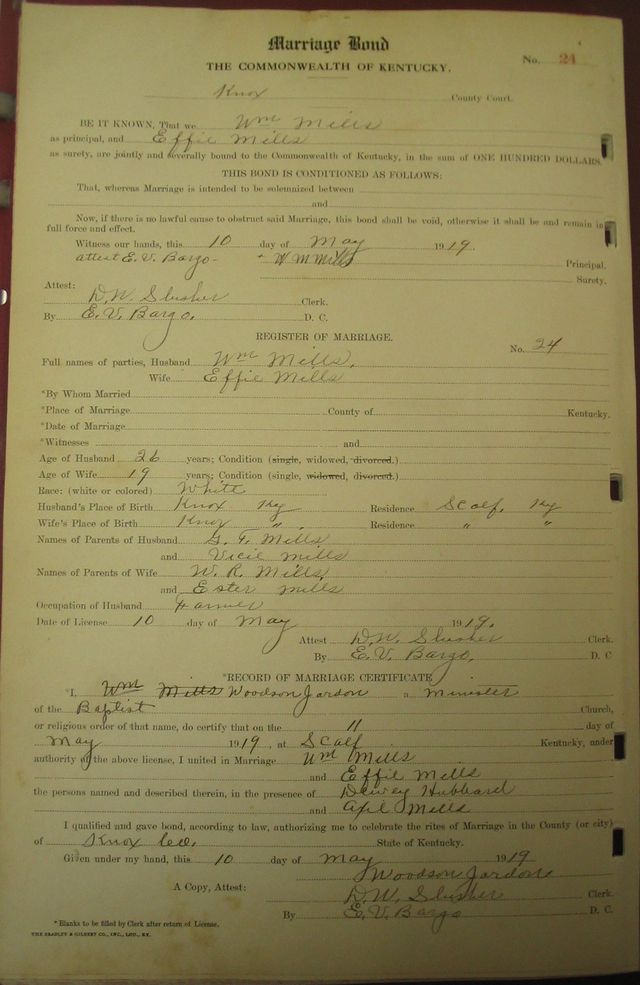 Marriage Bond
THE COMMONWEALTH OF KENTUCKY.
No. 24
Knox County Court.
BE IT KNOWN, That we Wm Mills
as principal, and Effie Mills
as surety, are jointly and severally bound to the Commonwealth of Kentucky, in the sum of ONE HUNDRED DOLLARS.
THIS BOND IS CONDITIONED AS FOLLOWS:
That, whereas Marriage is intended to be solemnized between
and
Now, if there is no lawful cause to obstruct said Marriage, this bond shall be void, otherwise it shall be and remain in
full force and effect.
Witness our hands, this 10 day of May 1919.
attest E. V. Bargo - Wm Mills Principal.
Surety.
Attest:
D. W. Slusher Clerk.
By E. V. Bargo. D. C.
REGISTER OF MARRIAGE.
No. 24
Full names of parties, Husband Wm Mills.
Wife Effie Mills
*By Whom Married
*Place of Marriage County of Kentucky.
*Date of Marriage
*Witnesses and
Age of Husband 26 years; Condition (single, widowed, divorced.)
Age of Wife 19 years; Condition (single, widowed, divorced.)
Race: (white or colored) White
Husband's Place of Birth Knox Ky Residence Scalf, Ky
Wife's Place of Birth Knox " Residence " "
Names of Parents of Husband G. F. Mills
and Vicie Mills
Names of Parents of Wife W. R. Mills
and Ester Mills
Occupation of Husband Farmer
Date of License 10 day of May 1919.
Attest D. W. Slusher Clerk.
By E. V. Bargo. D. C
*RECORD OF MARRIAGE CERTIFICATE
*I, Wm Mills Woodson Jardon a Minister
of the Baptist Church,
or religious order of that name, do certify that on the 11 day of
May 1919, at Scalf Kentucky, under
authority of the above license, I united in Marriage Wm Mills
and Effie Mills
the persons named and described therein, in the presence of Dewey Hubbard
and Mills
I qualified and gave bond, according to law, authorizing me to celebrate the rites of Marriage in the County (or city)
of Knox State of Kentucky.
Given under my hand, this 10 day of May 1919
Woodson Jardon
A Copy, Attest: D. W. Slusher Clerk.
By E. V. Bargo D. C.
*Blanks to be filled by Clerk after return of License.
THE BRADLEY & GILBERT CO., INC., LOU., KY.